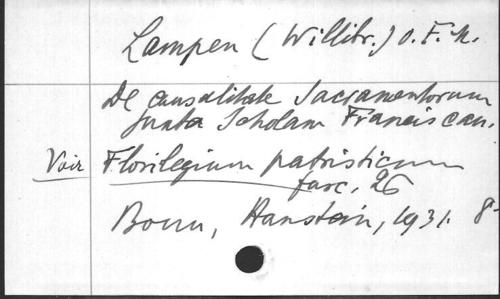 Lampen (Willibr.) O.F.M.
De causalitate Sacramentorum
juxta Scholam Franciscan.
Voir Florilegium patristicum
fasc. 26
Bonn, Hanstein, 1931. 8°